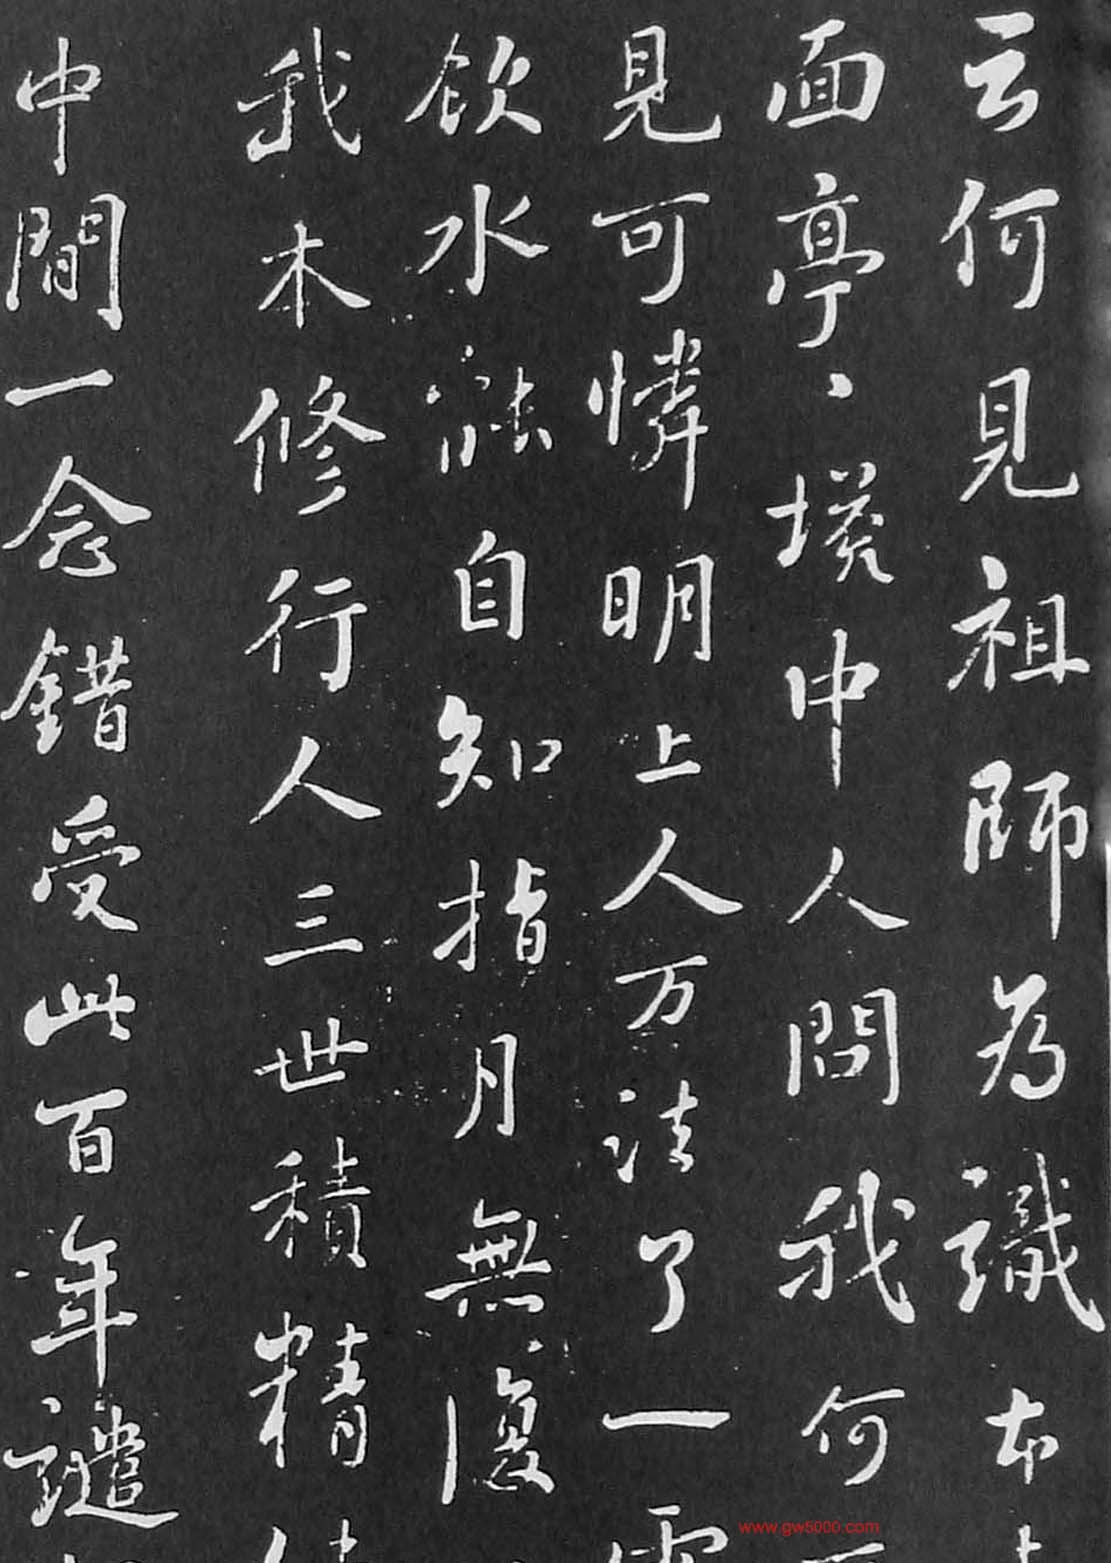 云何見祖師為識本
面亭亭㙮中人問我何
見可憐明上人万法了一
飲水能自知指月無復
我本修行人三世積精
中間一念錯受此百年譴
www.gw5000.com